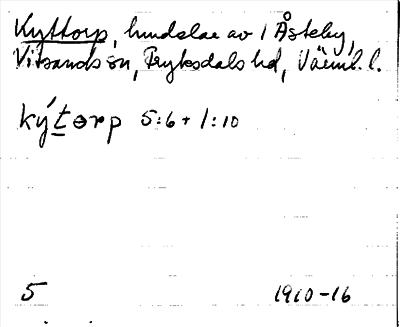 Kyttorp, lmdelar av 1 Åsteby,
Vitsands sn, Fryksdals hd, Värml. l.
ky´tɵrp 5:6 + 1:10
5 1910-16